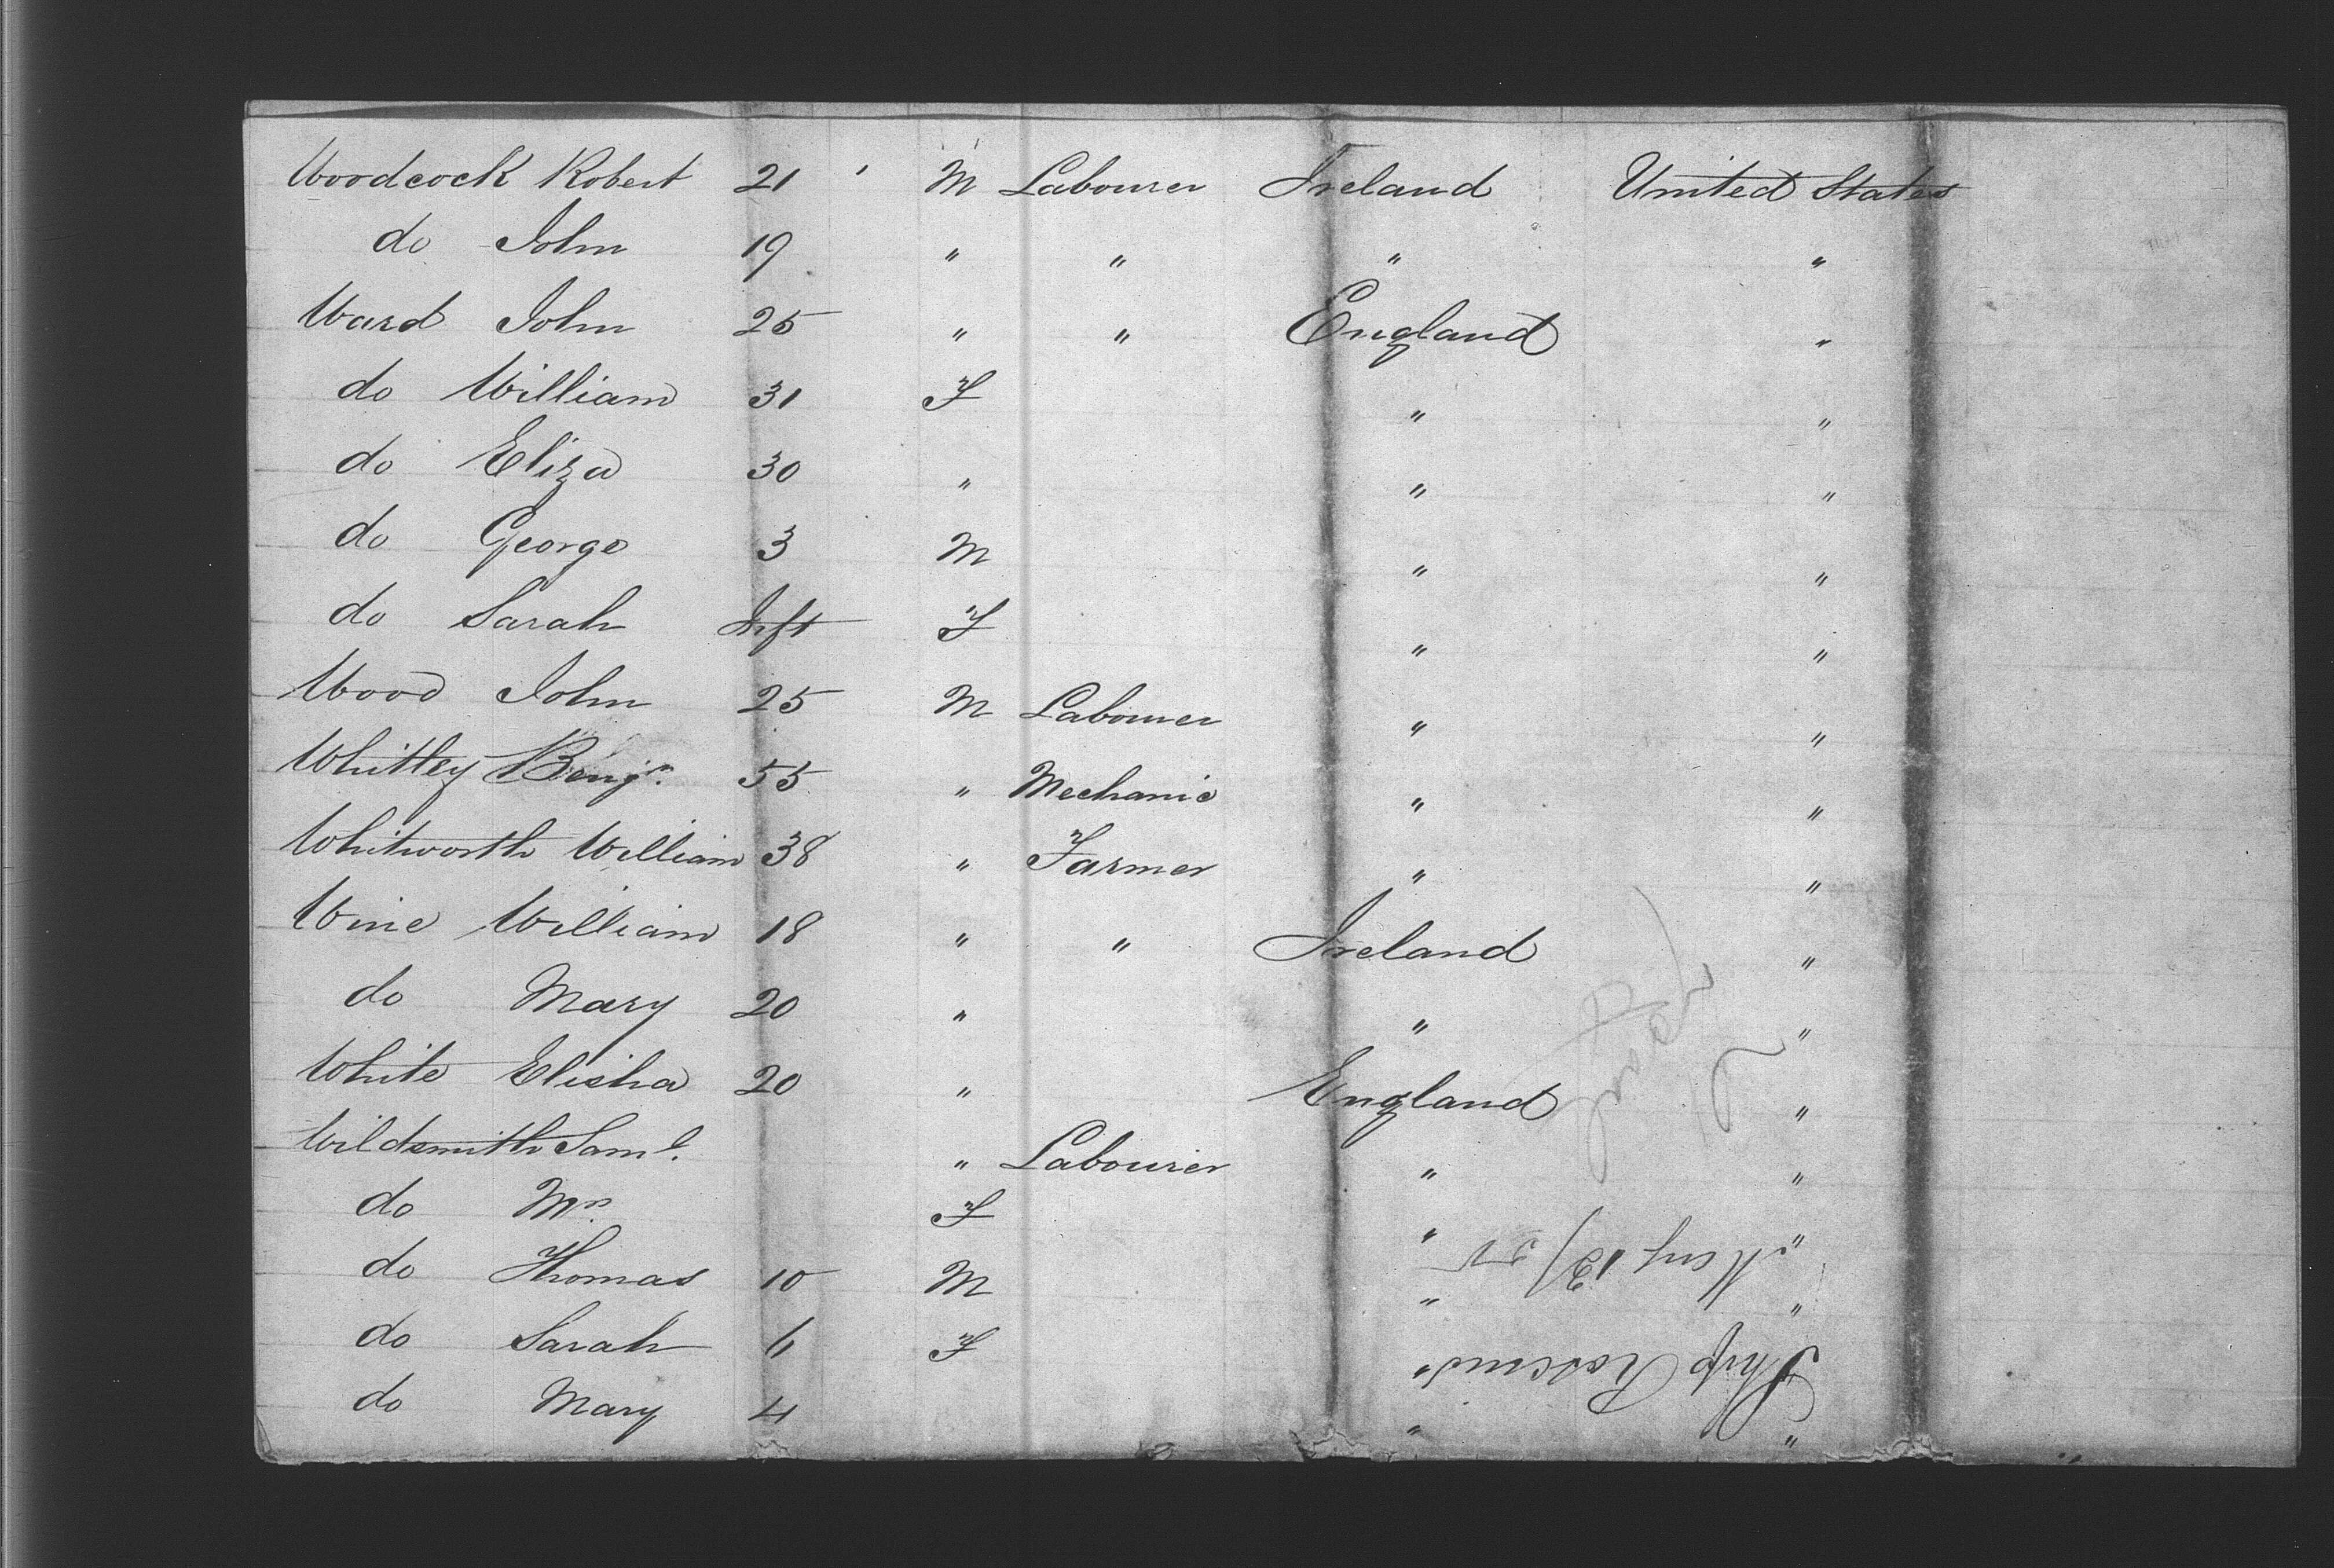 Woodcock Robert 21 M Labourer Ireland United States
do John 19 " " " "
Ward John 25 " " England "
do William 31 F " "
do Eliza 30 " " "
do George 3 M " "
do Sarah Inft F " "
Wood John 25 M Labourer " "
Whitley Benjn. 55 " Mechanic " "
Whitworth William 38 " Farmer " "
Wine William 18 " " Ireland "
do Mary 20 " " "
White Elisha 20 " England "
Wildsmith Saml. " Labourer " "
do Mrs F " "
do Thomas 10 M " "
do Sarah 6 F " "
do Mary 4 " "
Ship Roscius
May 13/